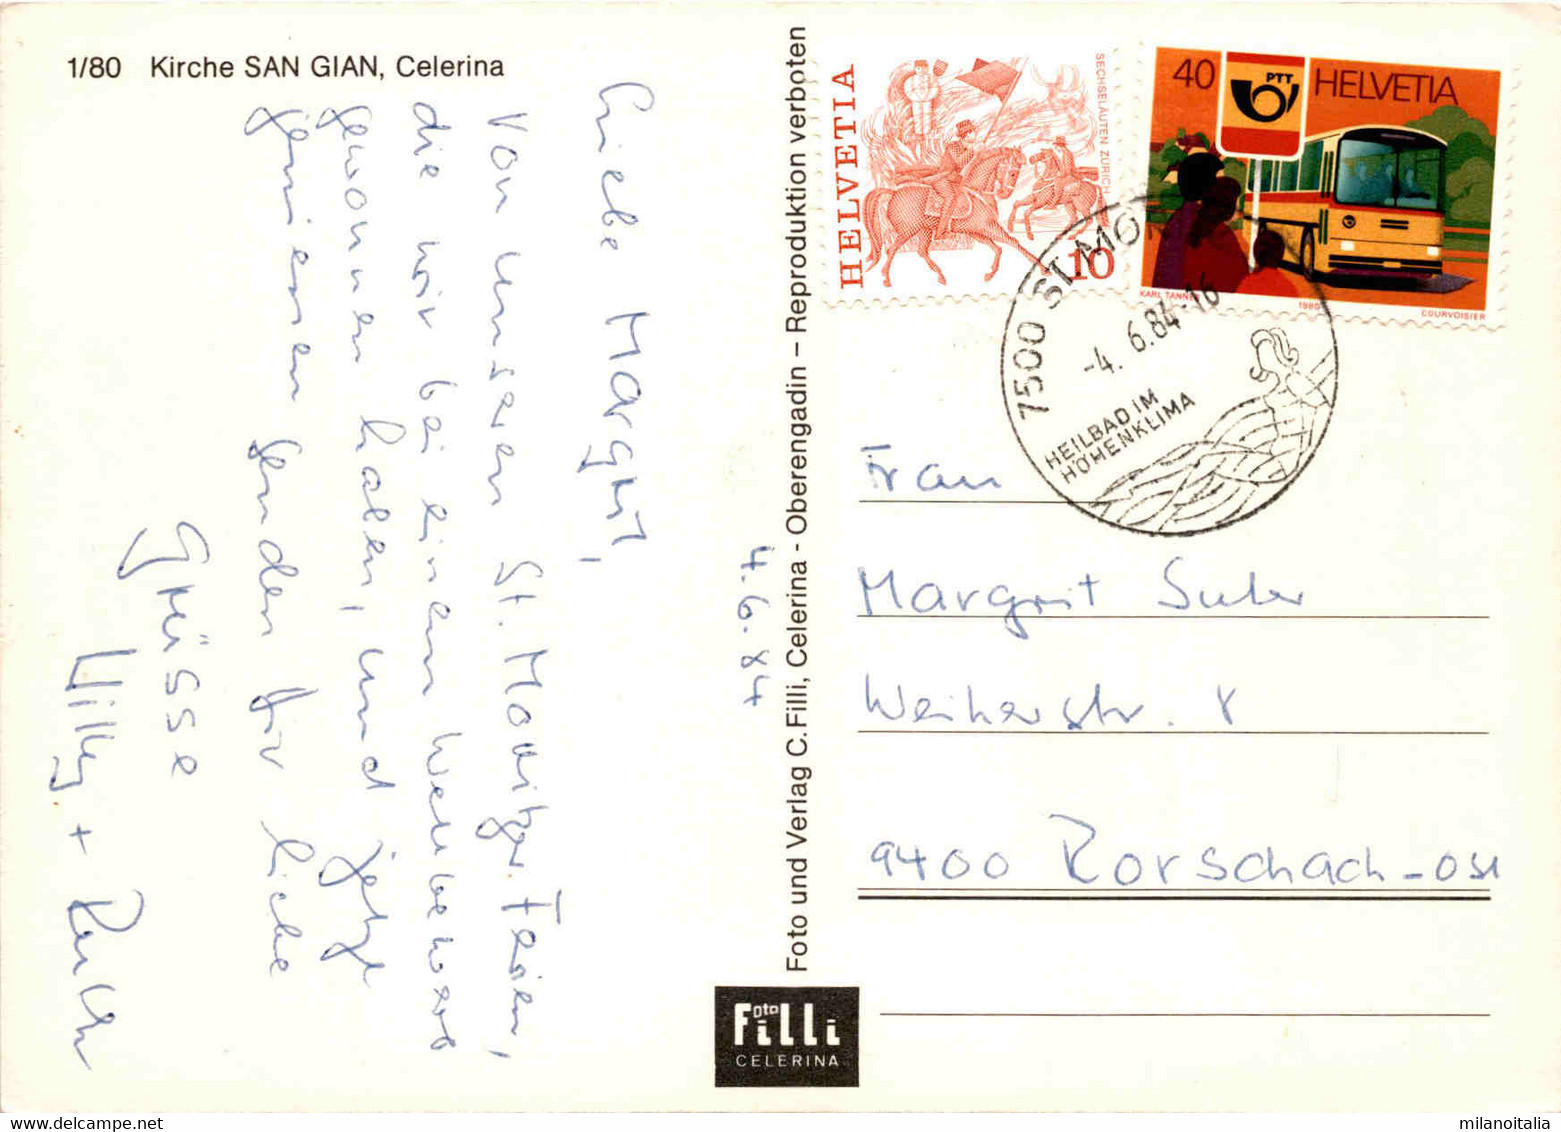 1/80 Kirche SAN GIAN, Celerina
Liebe Margrit,
Von unseren St. Moritzer Ferien,
die wir bei einem Wettbewerb
gewonnen haben, und jetzt
geniessen senden wir liebe
Grüsse
Willy + Ruth
4.6.84
Foto und Verlag C. Filli, Celerina - Oberengadin – Reproduktion verboten
Foto Filli
CELERINA
HELVETIA
SECHSELÄUTEN ZÜRICH
10
40
PTT
HELVETIA
KARL TANNER
1980
COURVOISIER
7500 ST. MORITZ
-4. 6.84-16
HEILBAD IM
HÖHENKLIMA
Frau
Margrit Suter
Weiherstr. 8
9400 Rorschach-Ost
milanoitalia